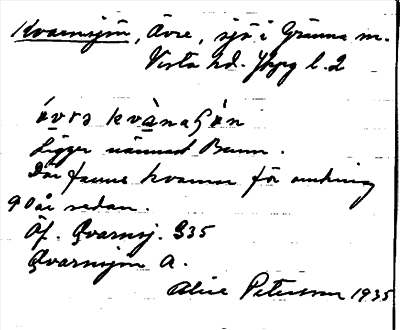 Kvarnsjön, Övre, sjö i Gränna m.
Vista hd. Jkpg l. 2
óvrə kvànaʃòn
Ligger närmast Bunn.
Där fanns kvarnar för omkring
90 år sedan.
Öf. Qvarnsj. S35
Qvarnsjön A.
Alice Petersson 1935